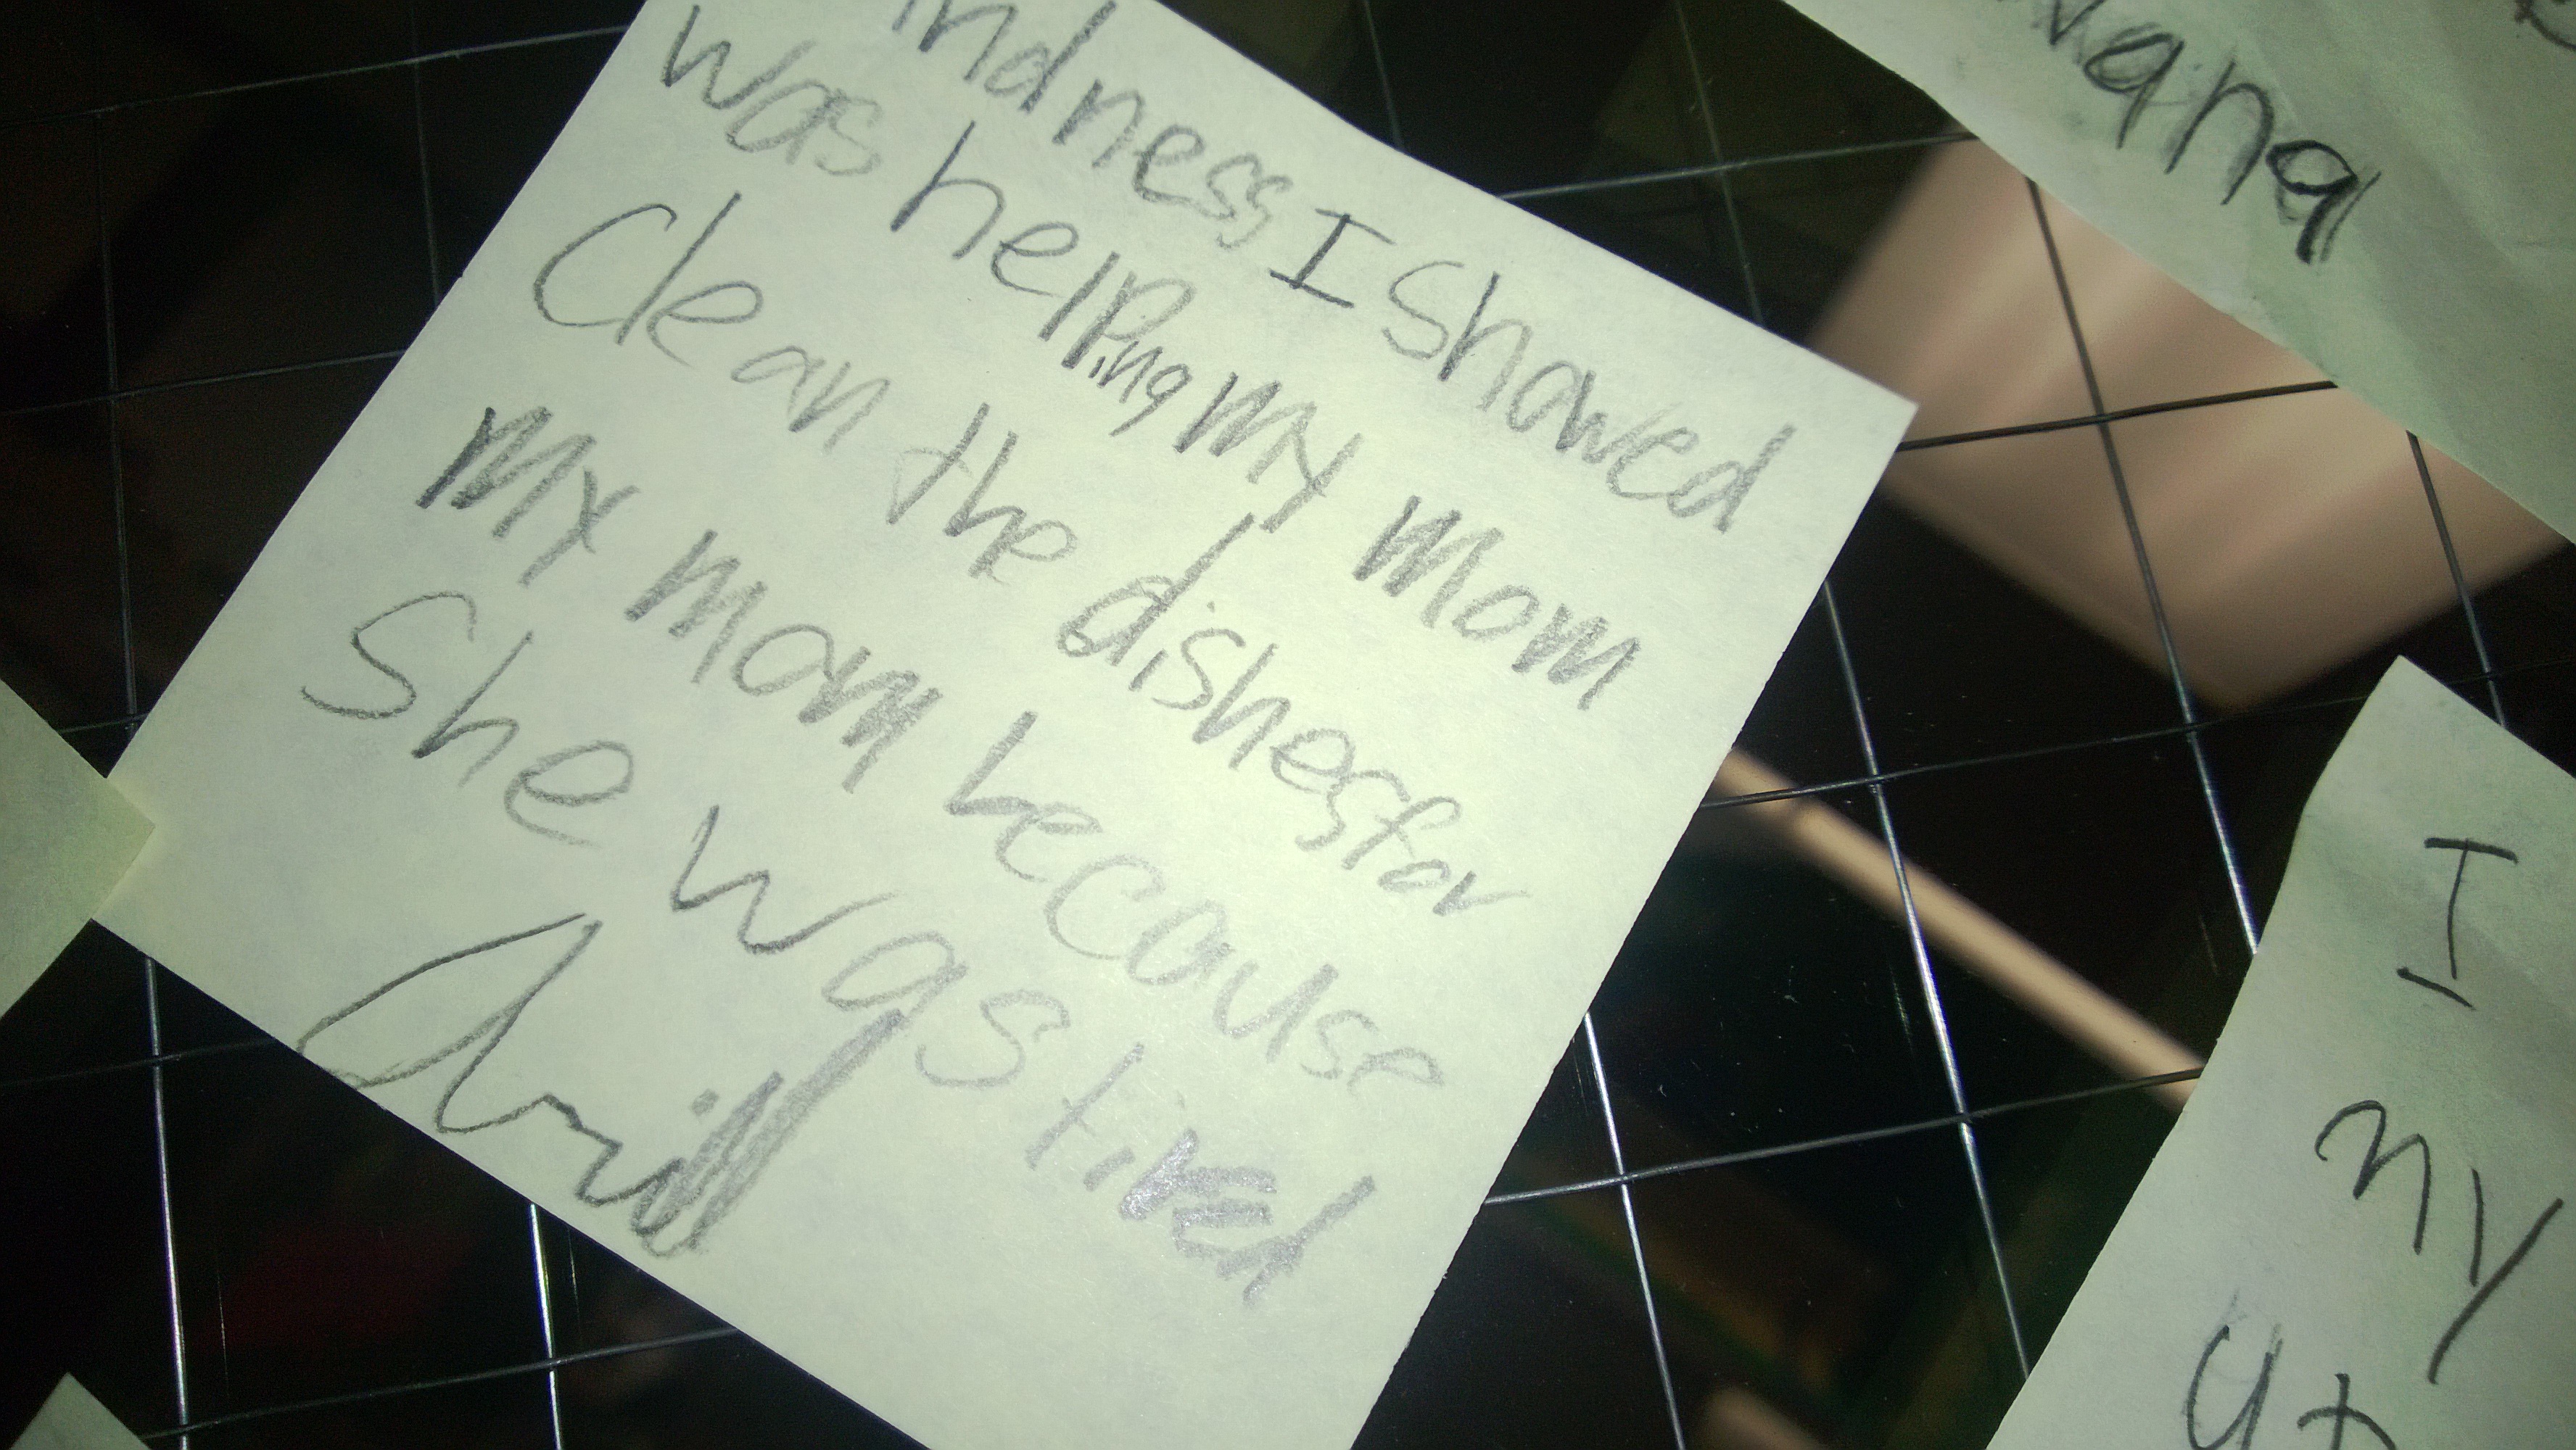 indness I showed
was helping my mom
Clean the dishes for
my mom because
she was tired
I
my